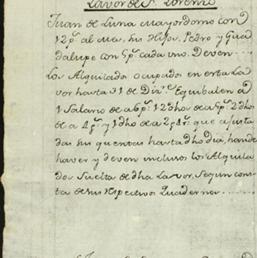 Lavor de Sn. Lorenzo
Juan de Luna mayordomo con
12 ps. al mes, sus Hijos, Pedro y Gua
dalupe con 5 ps. cada uno. Deven
Los Alquilados ocupado en esta La
vor hasta 31 de Dize. Equibalen a
1 Salario de a 6 ps. 12 dhos de a 5 ps. 2 dhos
de a 4 ps. y 1 dho de a 2 ps. 4 rs. que ajusta
das sus quentas hasta dho dia, han de
haver y deven inclusos los Alquila
dos Sueltos de dha Lavor, Segun cons
ta de sus Respectivos Quadernos